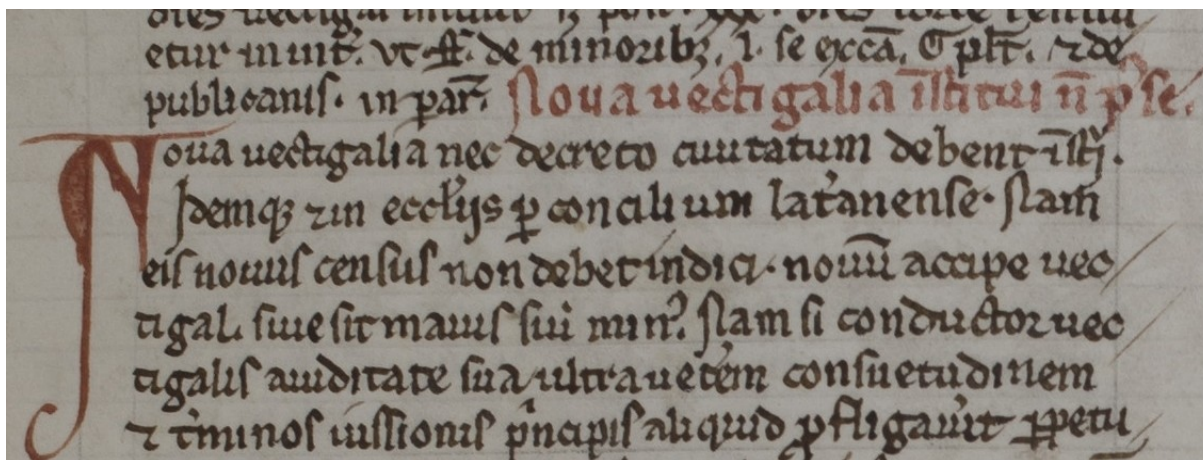 etur in int᷑. vt ff. de minoribꝫ. l. se eccā. ⁊ de
publicanis. in par᷑. Noua uectigalia īstitui n̄ p̄ se.
Noua uectigalia nec decreto ciuitatum debent īsti.
Idemqꝫ ⁊ in eccliis ꝑ concilium lat᷑anense. Nam
eis nouus census non debet indici. nouū accipe uec
tigal. siue sit maius siui min᷒. Nam si conductor uec
tigalis auiditate sua ultra uet᷑em consuetudinem
⁊ t᷑minos iussionis p̄ncipis aliquid ꝓfligau᷑it ꝑpetu